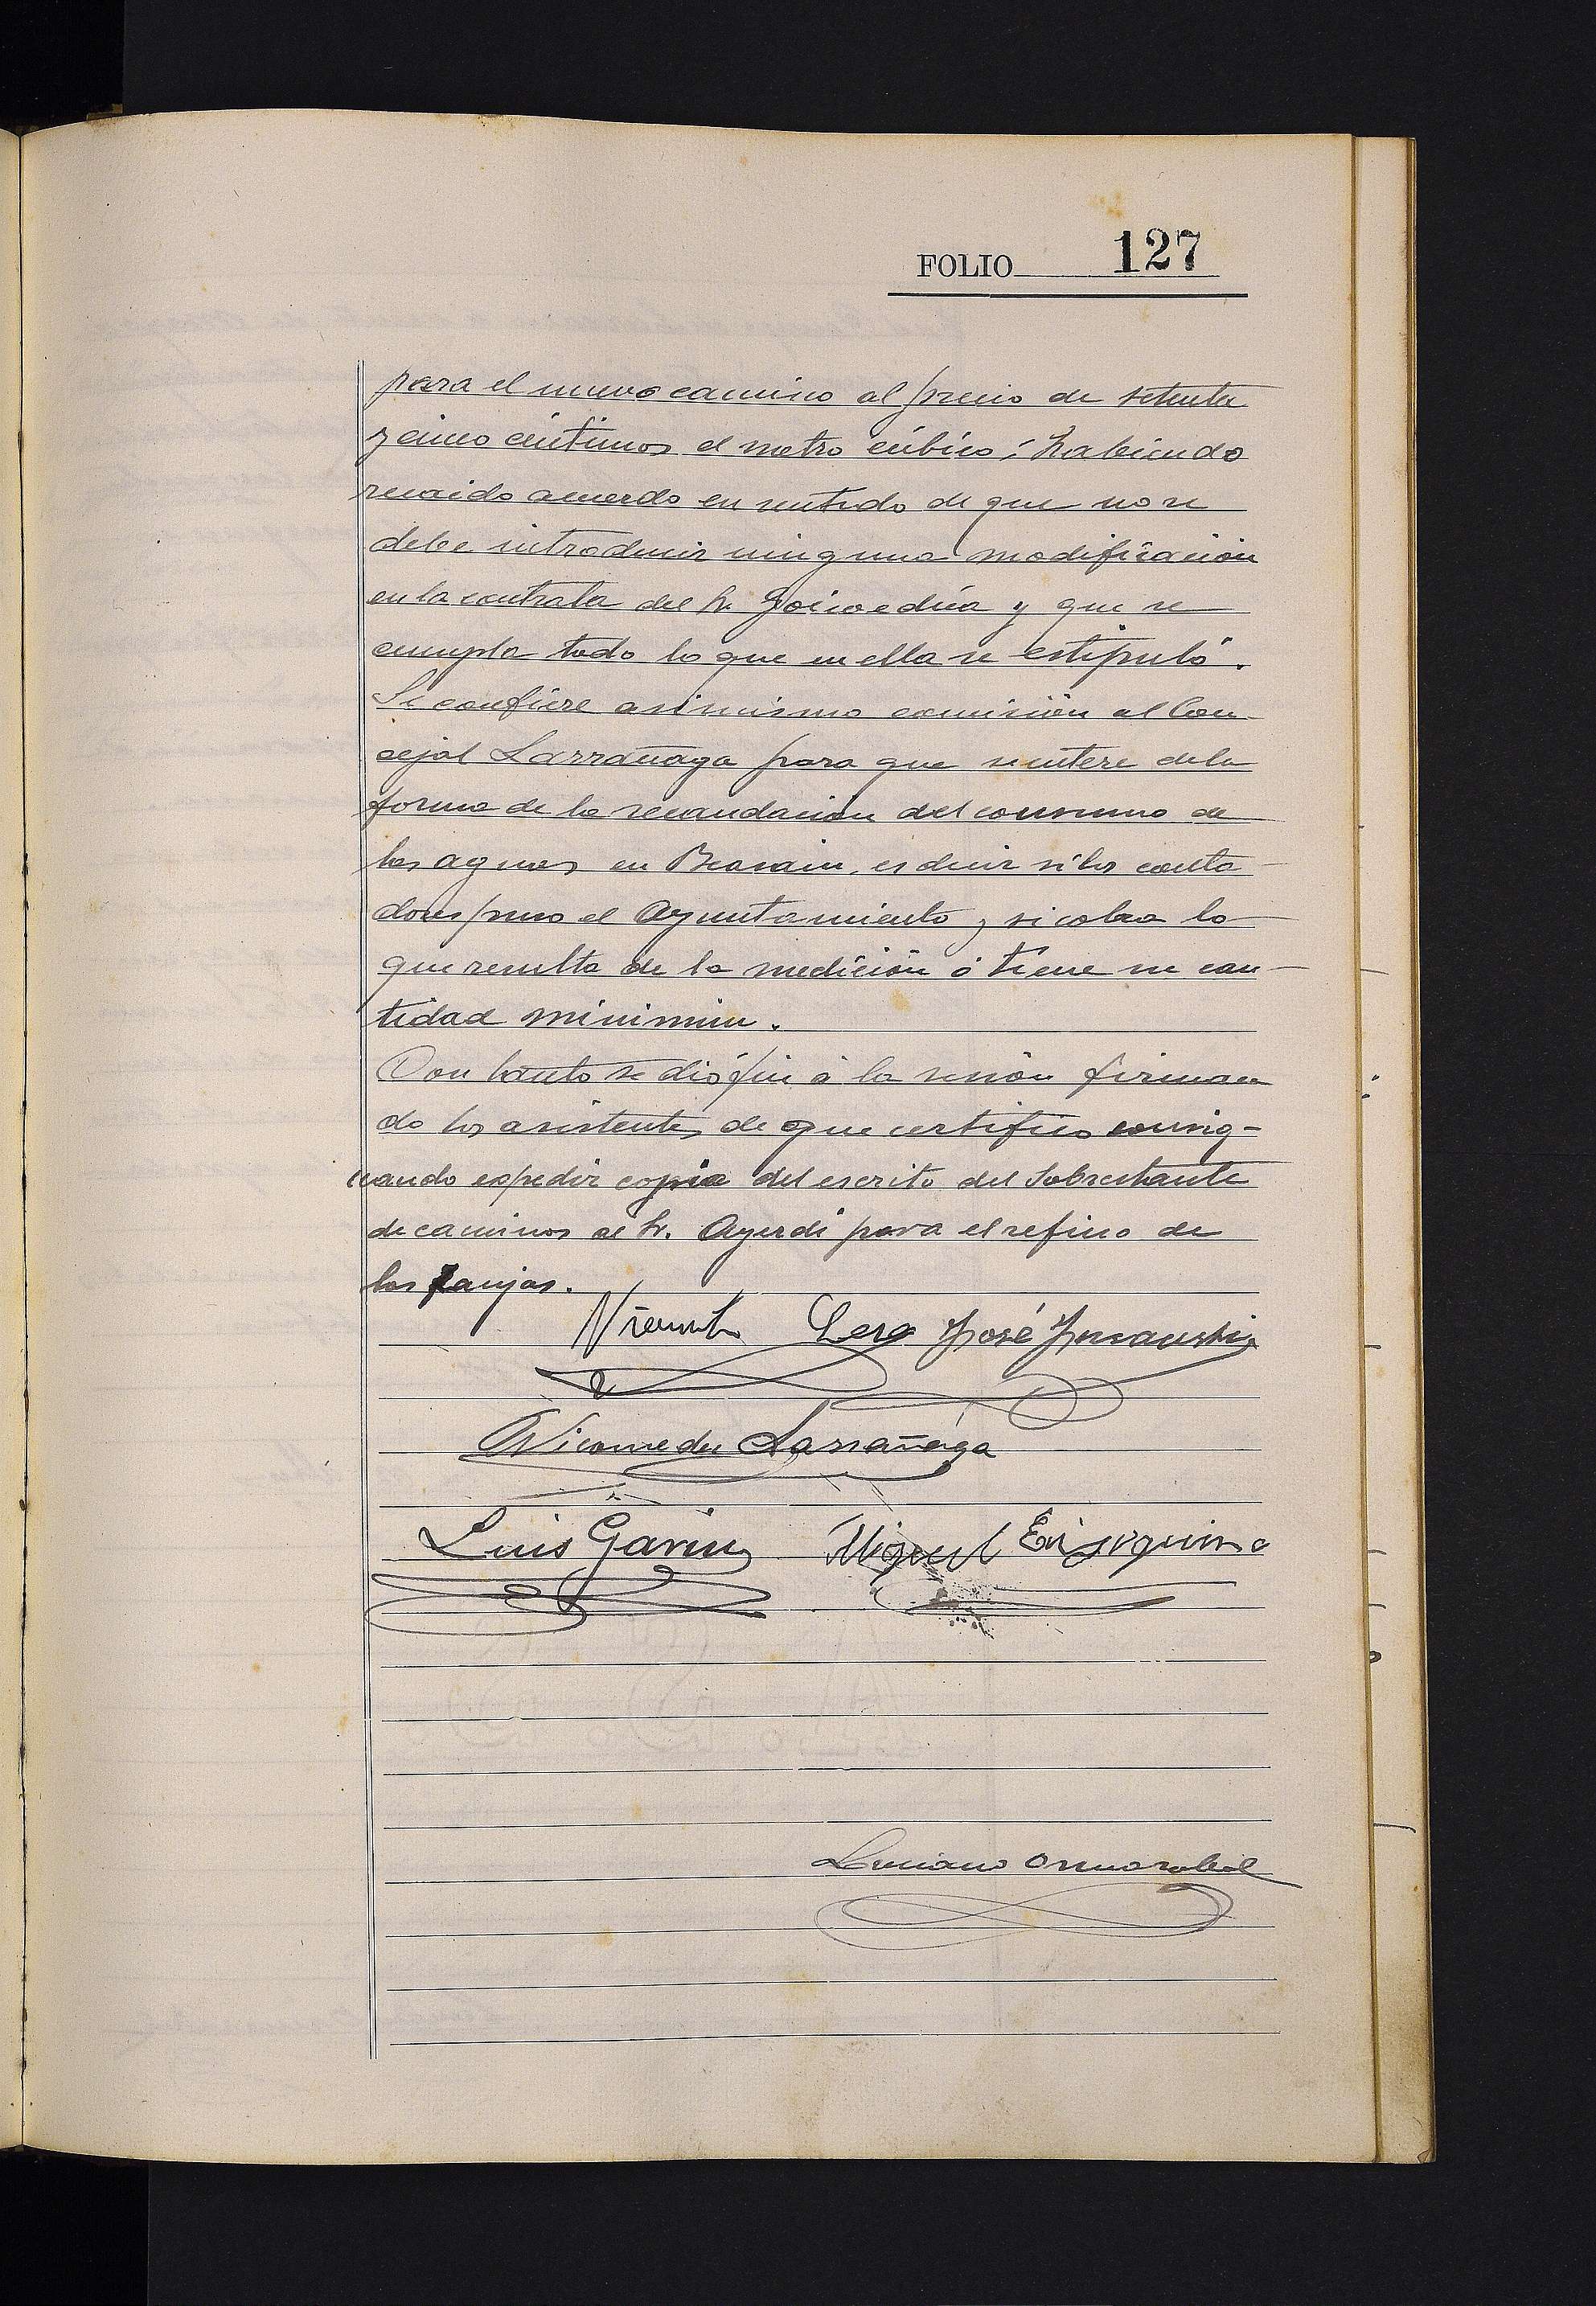 FOLIO 127
para el nuevo camino al precio de setenta
y cinco céntimos el metro cúbico; habiendo
recaido acuerdo en sentido de que no se
debe introducir ninguna modificación
en la contrata del Sr. Goicoechea y que se
cumpla todo lo que en ella se estipuló.
Se confiere asimismo comisión al Con-
cejal Larrañaga para que se entere de la
forma de la recaudación del consumo de
las aguas en Beasain, es decir si los conta-
dores puso el Ayuntamiento y si cobra lo
que resulta de la medición ó tiene su can-
tidad minimum.
Con tanto se dió fin á la sesión firman
do los asistentes de que certifico consig-
nando expedir copia del escrito del Sobrestante
de caminos al Sr. Ayerdi para el refino de
las zanjas.
Vicente José
Nicomedes Larrañaga
Luis Garin Miguel
Luciano